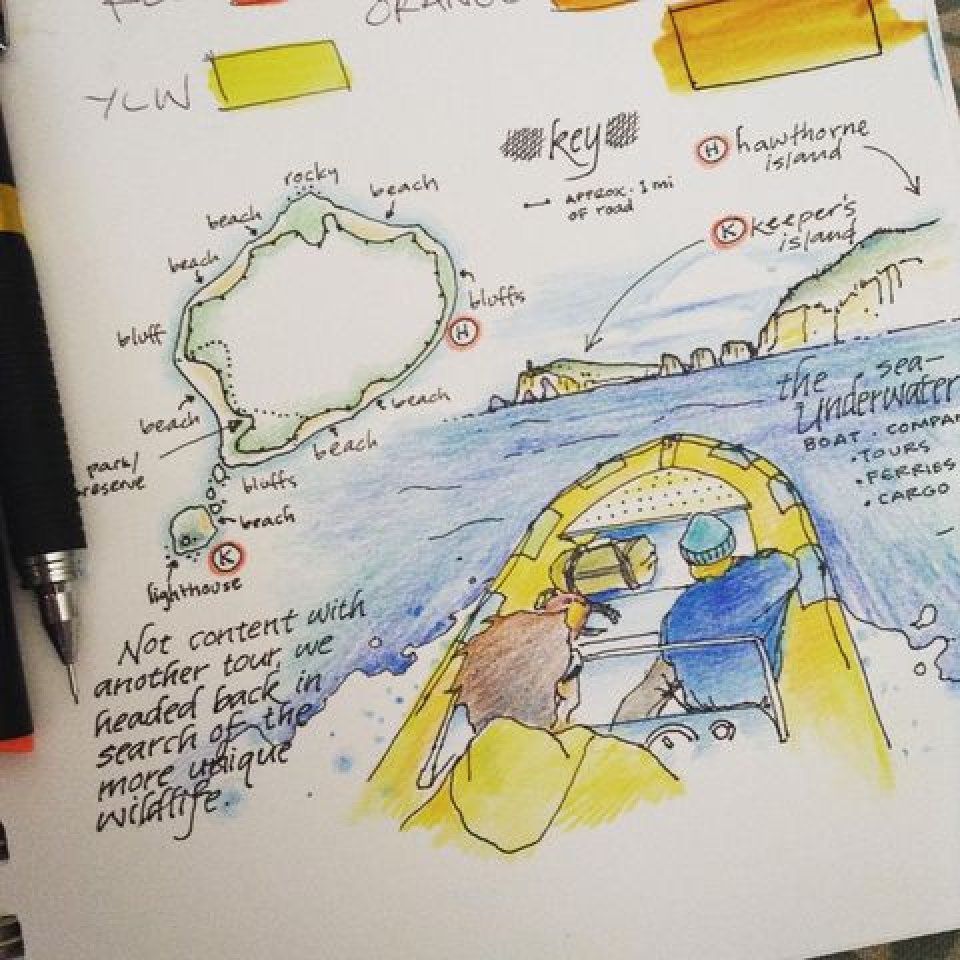 YLW
key
APPROX. 1 mi
of road
H hawthorne
island
K keeper's
island
rocky
beach
beach
beach
bluff
bluffs
H
beach
beach
beach
park/
reserve
bluffs
beach
K
lighthouse
the sea-
Underwater
BOAT COMPAN
• TOURS
• FERRIES
• CARGO
Not content with
another tour, we
headed back in
search of the
more unique
wildlife.